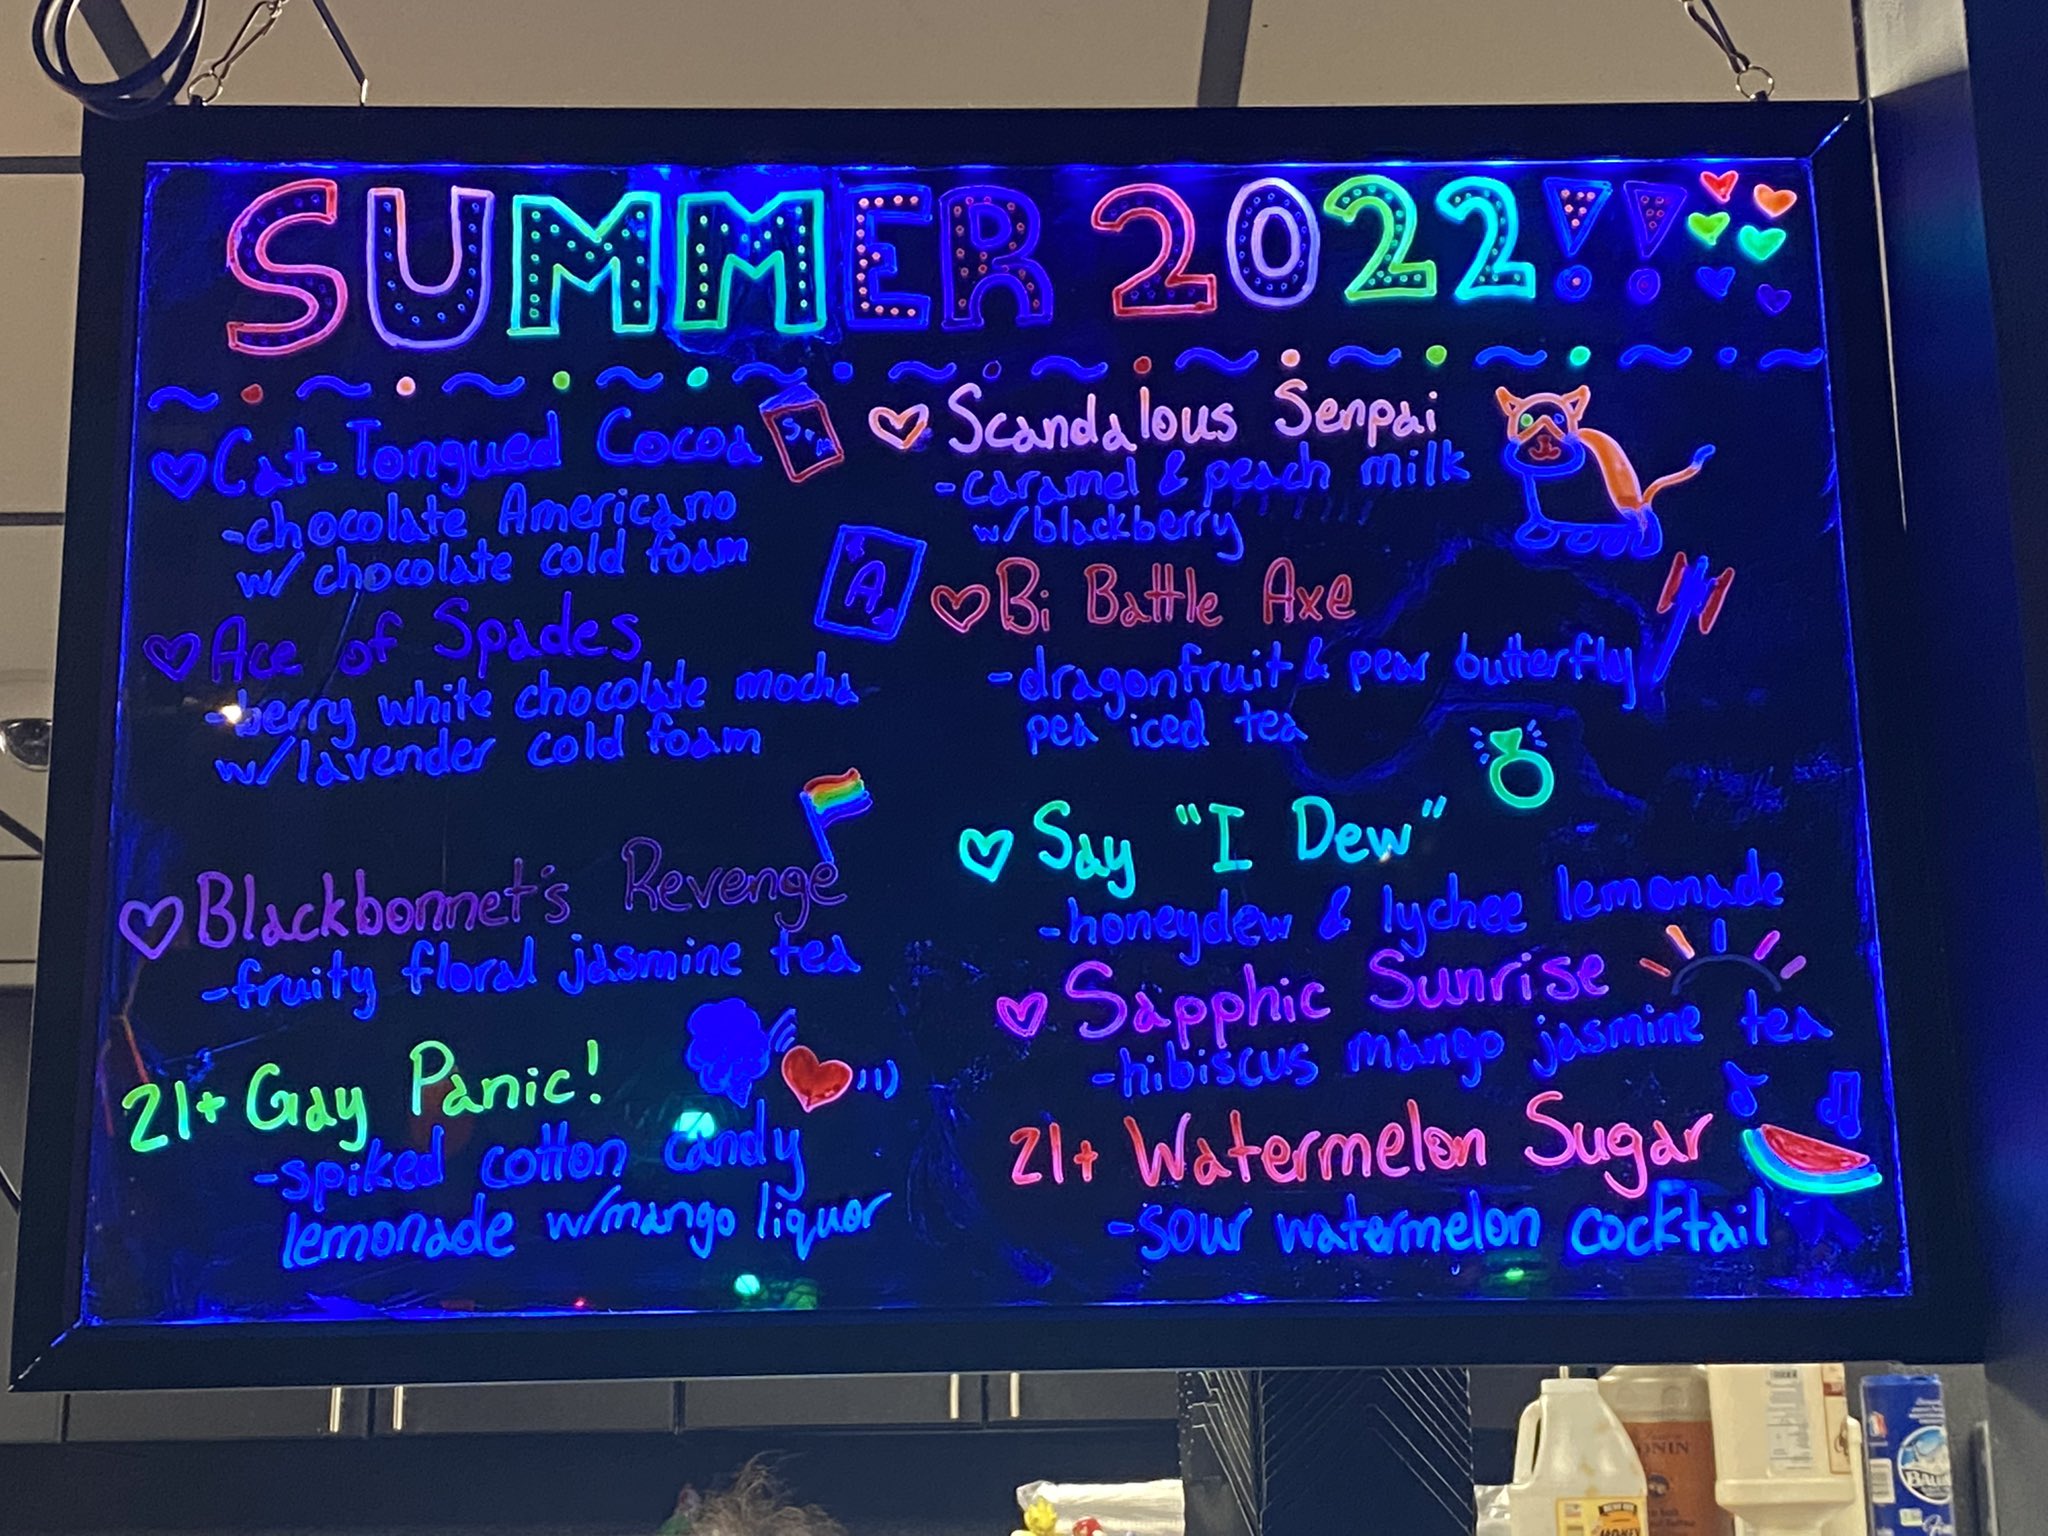 SUMMER 2022!!
Cat-Tongued Cocoa
-chocolate Americano
w/ chocolate cold foam
A
Ace of Spades
-berry white chocolate mocha
w/lavender cold foam
Blackbonnet's Revenge
-fruity floral jasmine tea
21+ Gay Panic!
-spiked cotton candy
lemonade w/mango liquor
Scandalous Senpai
-caramel & peach milk
w/blackberry
Bi Battle Axe
-dragonfruit & pear butterfly
pea iced tea
Say "I Dew"
-honeydew & lychee lemonade
Sapphic Sunrise
-hibiscus mango jasmine tea
21+ Watermelon Sugar
-sour watermelon cocktail